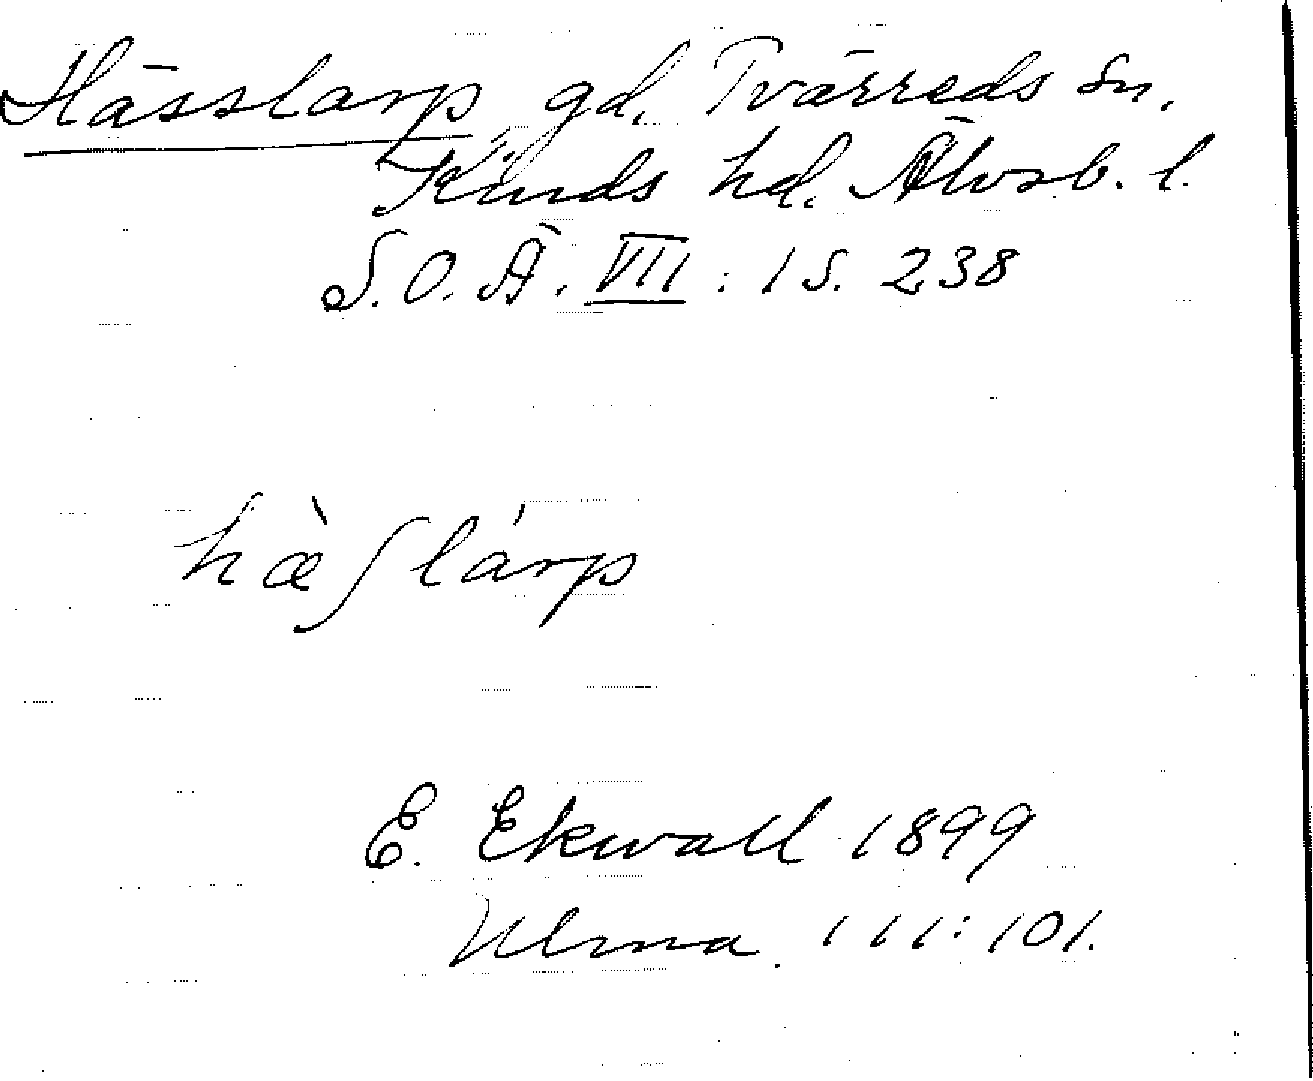 Hässlarp gd. Tvärreds sn.
Kinds hd. Älvsb. l.
S. O. Ä. VII : 1 S. 238
hæ̀ʃlárp
E. Ekwall 1899
Ulma. 111:101.